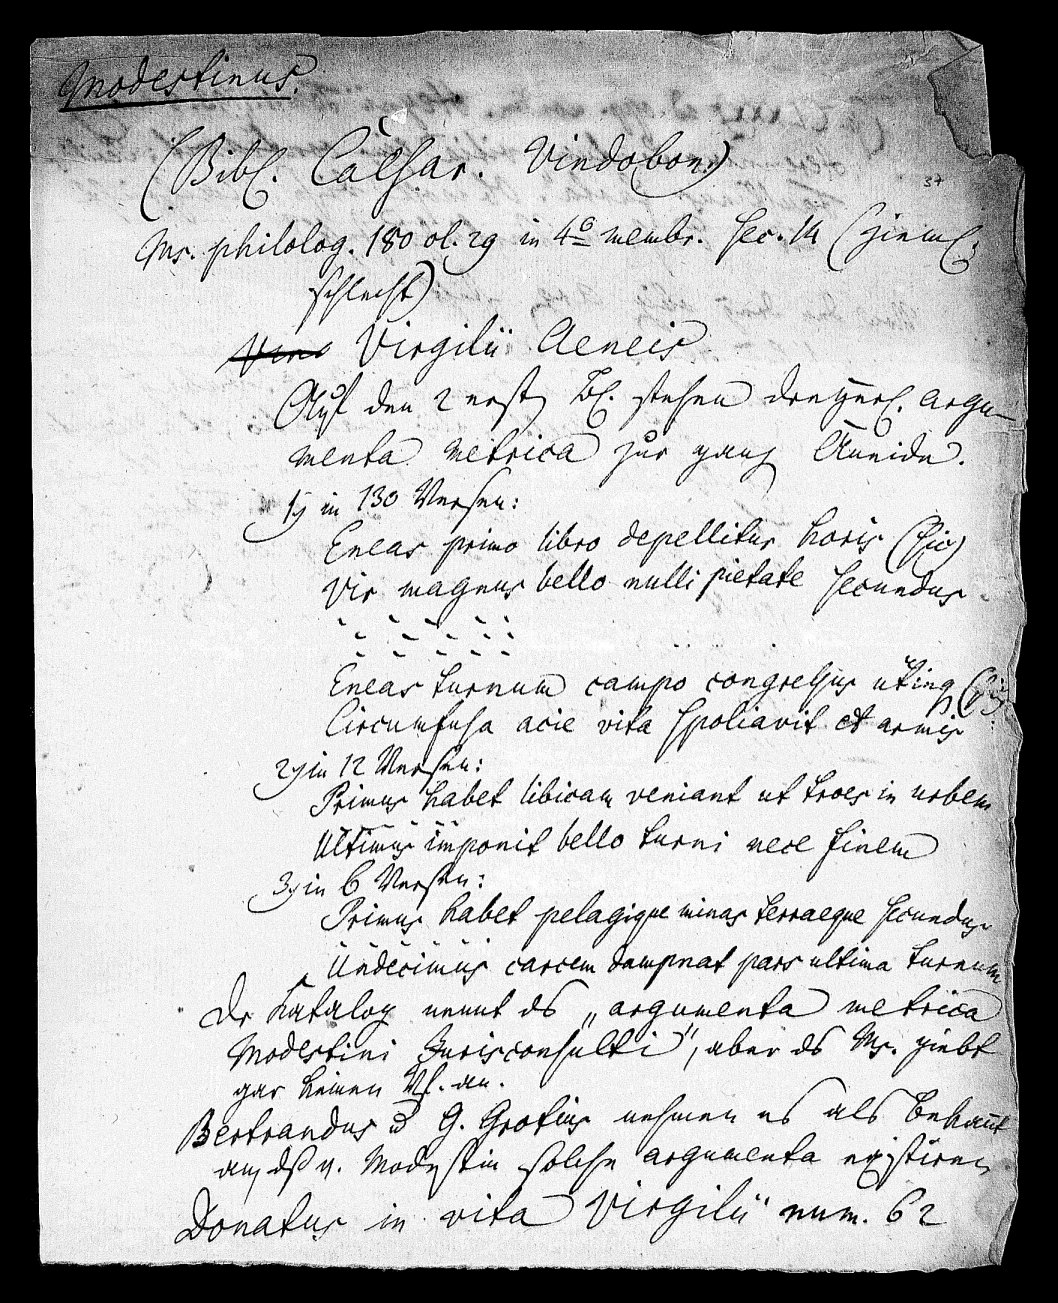 Modestinus.
37
(Bibl. Caesar. Vindobon.)
Ms. philolog. 180 ol. 29 in 4o membr. sec. 14 (zieml.
schlecht)
Virgilii Aeneis
Auf den 2 erst Bl. stehen argu-
menta metrica zur ganz Äneide.
1) in 130 Versen:
Eneas primo libro depellitur horis (sic)
Vir magnus bello nulli pietate secundus.
Eneas turnum campo congressus utinq (sic)
Circumfusa acie vita spoliavit et armis
2) in 12 Versen:
Primus habet libicam veniant ut troes in urbem
Ultimus imponit bello turni nece finem
3) in 6 Versen:
Primus habet pelagique minas terraeque secundus
Undecimus carcem dampnat pars ultima turnum
Dr Katalog nennt ds „argumenta metrica
Modestini Jurisconsulti", aber ds Ms. giebt
gar keinen Vf. an.
Bertrandus u G. Grotius nehmen es als bekannt
an, dß v. Modestin solche argumenta existiren
Donatus in vita Virgilii num. 62